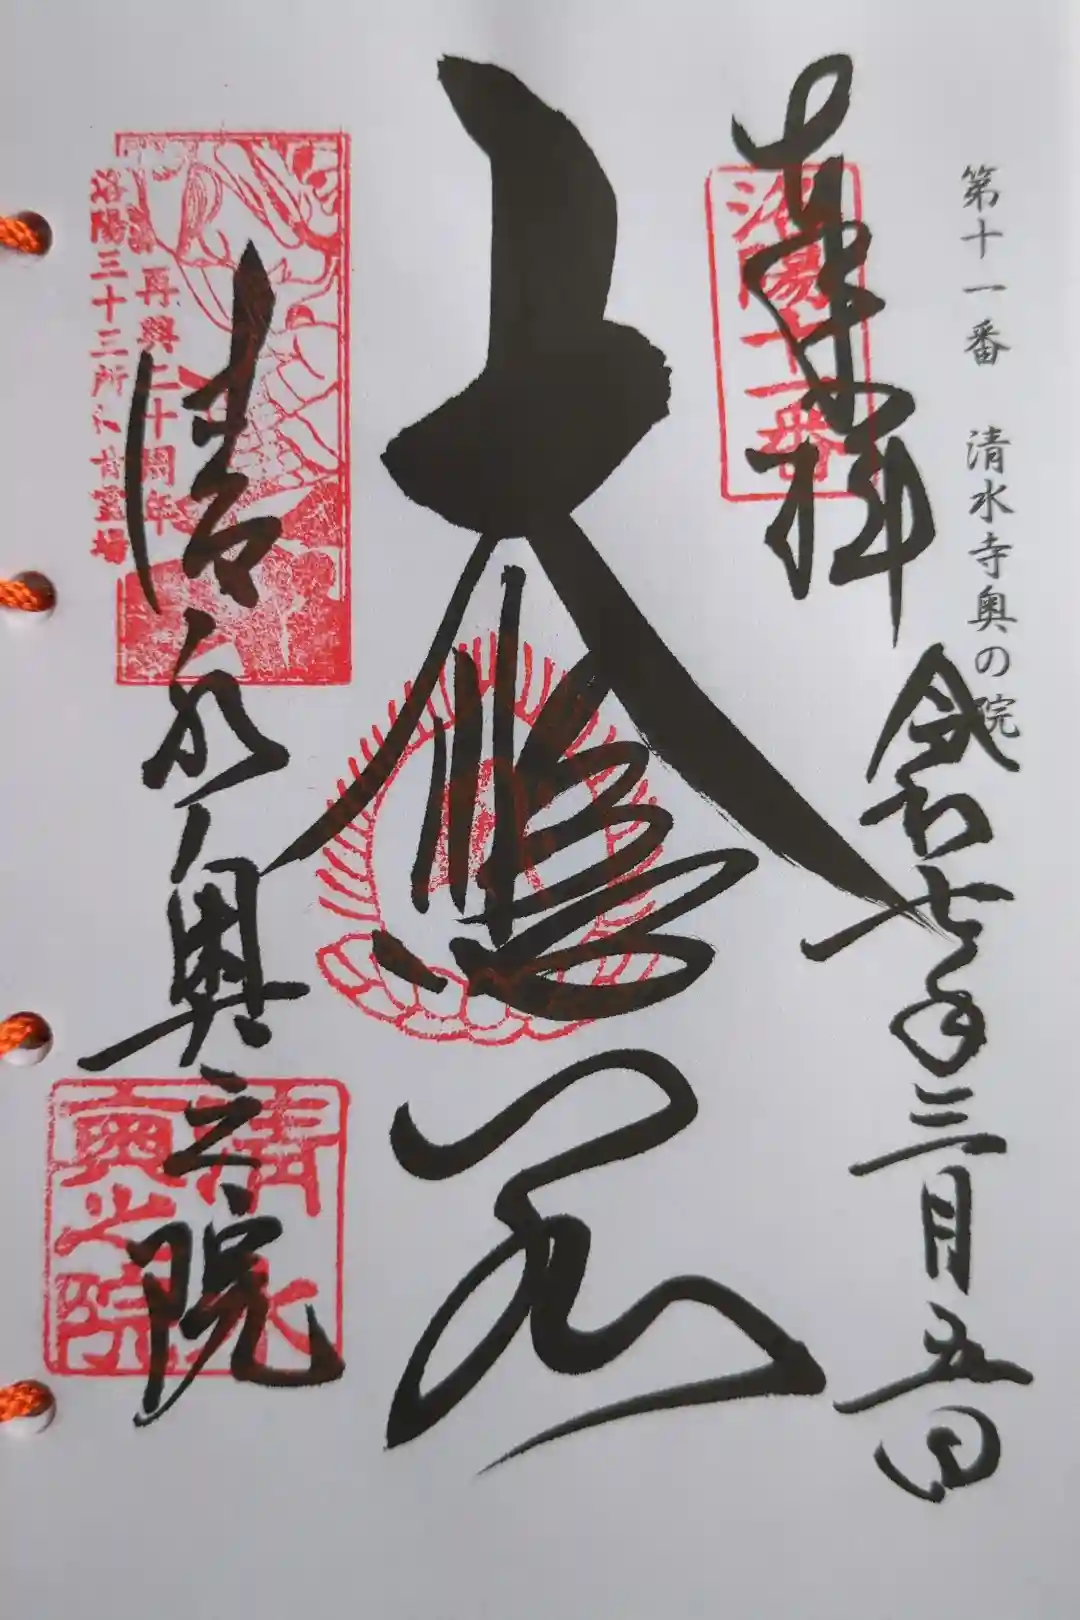 第十一番 清水寺奥の院
奉拝
洛陽十一番
令和七年三月五日
大悲閣
再興二十周年
洛陽三十三所観音霊場
清水奥之院
清水
奥之院